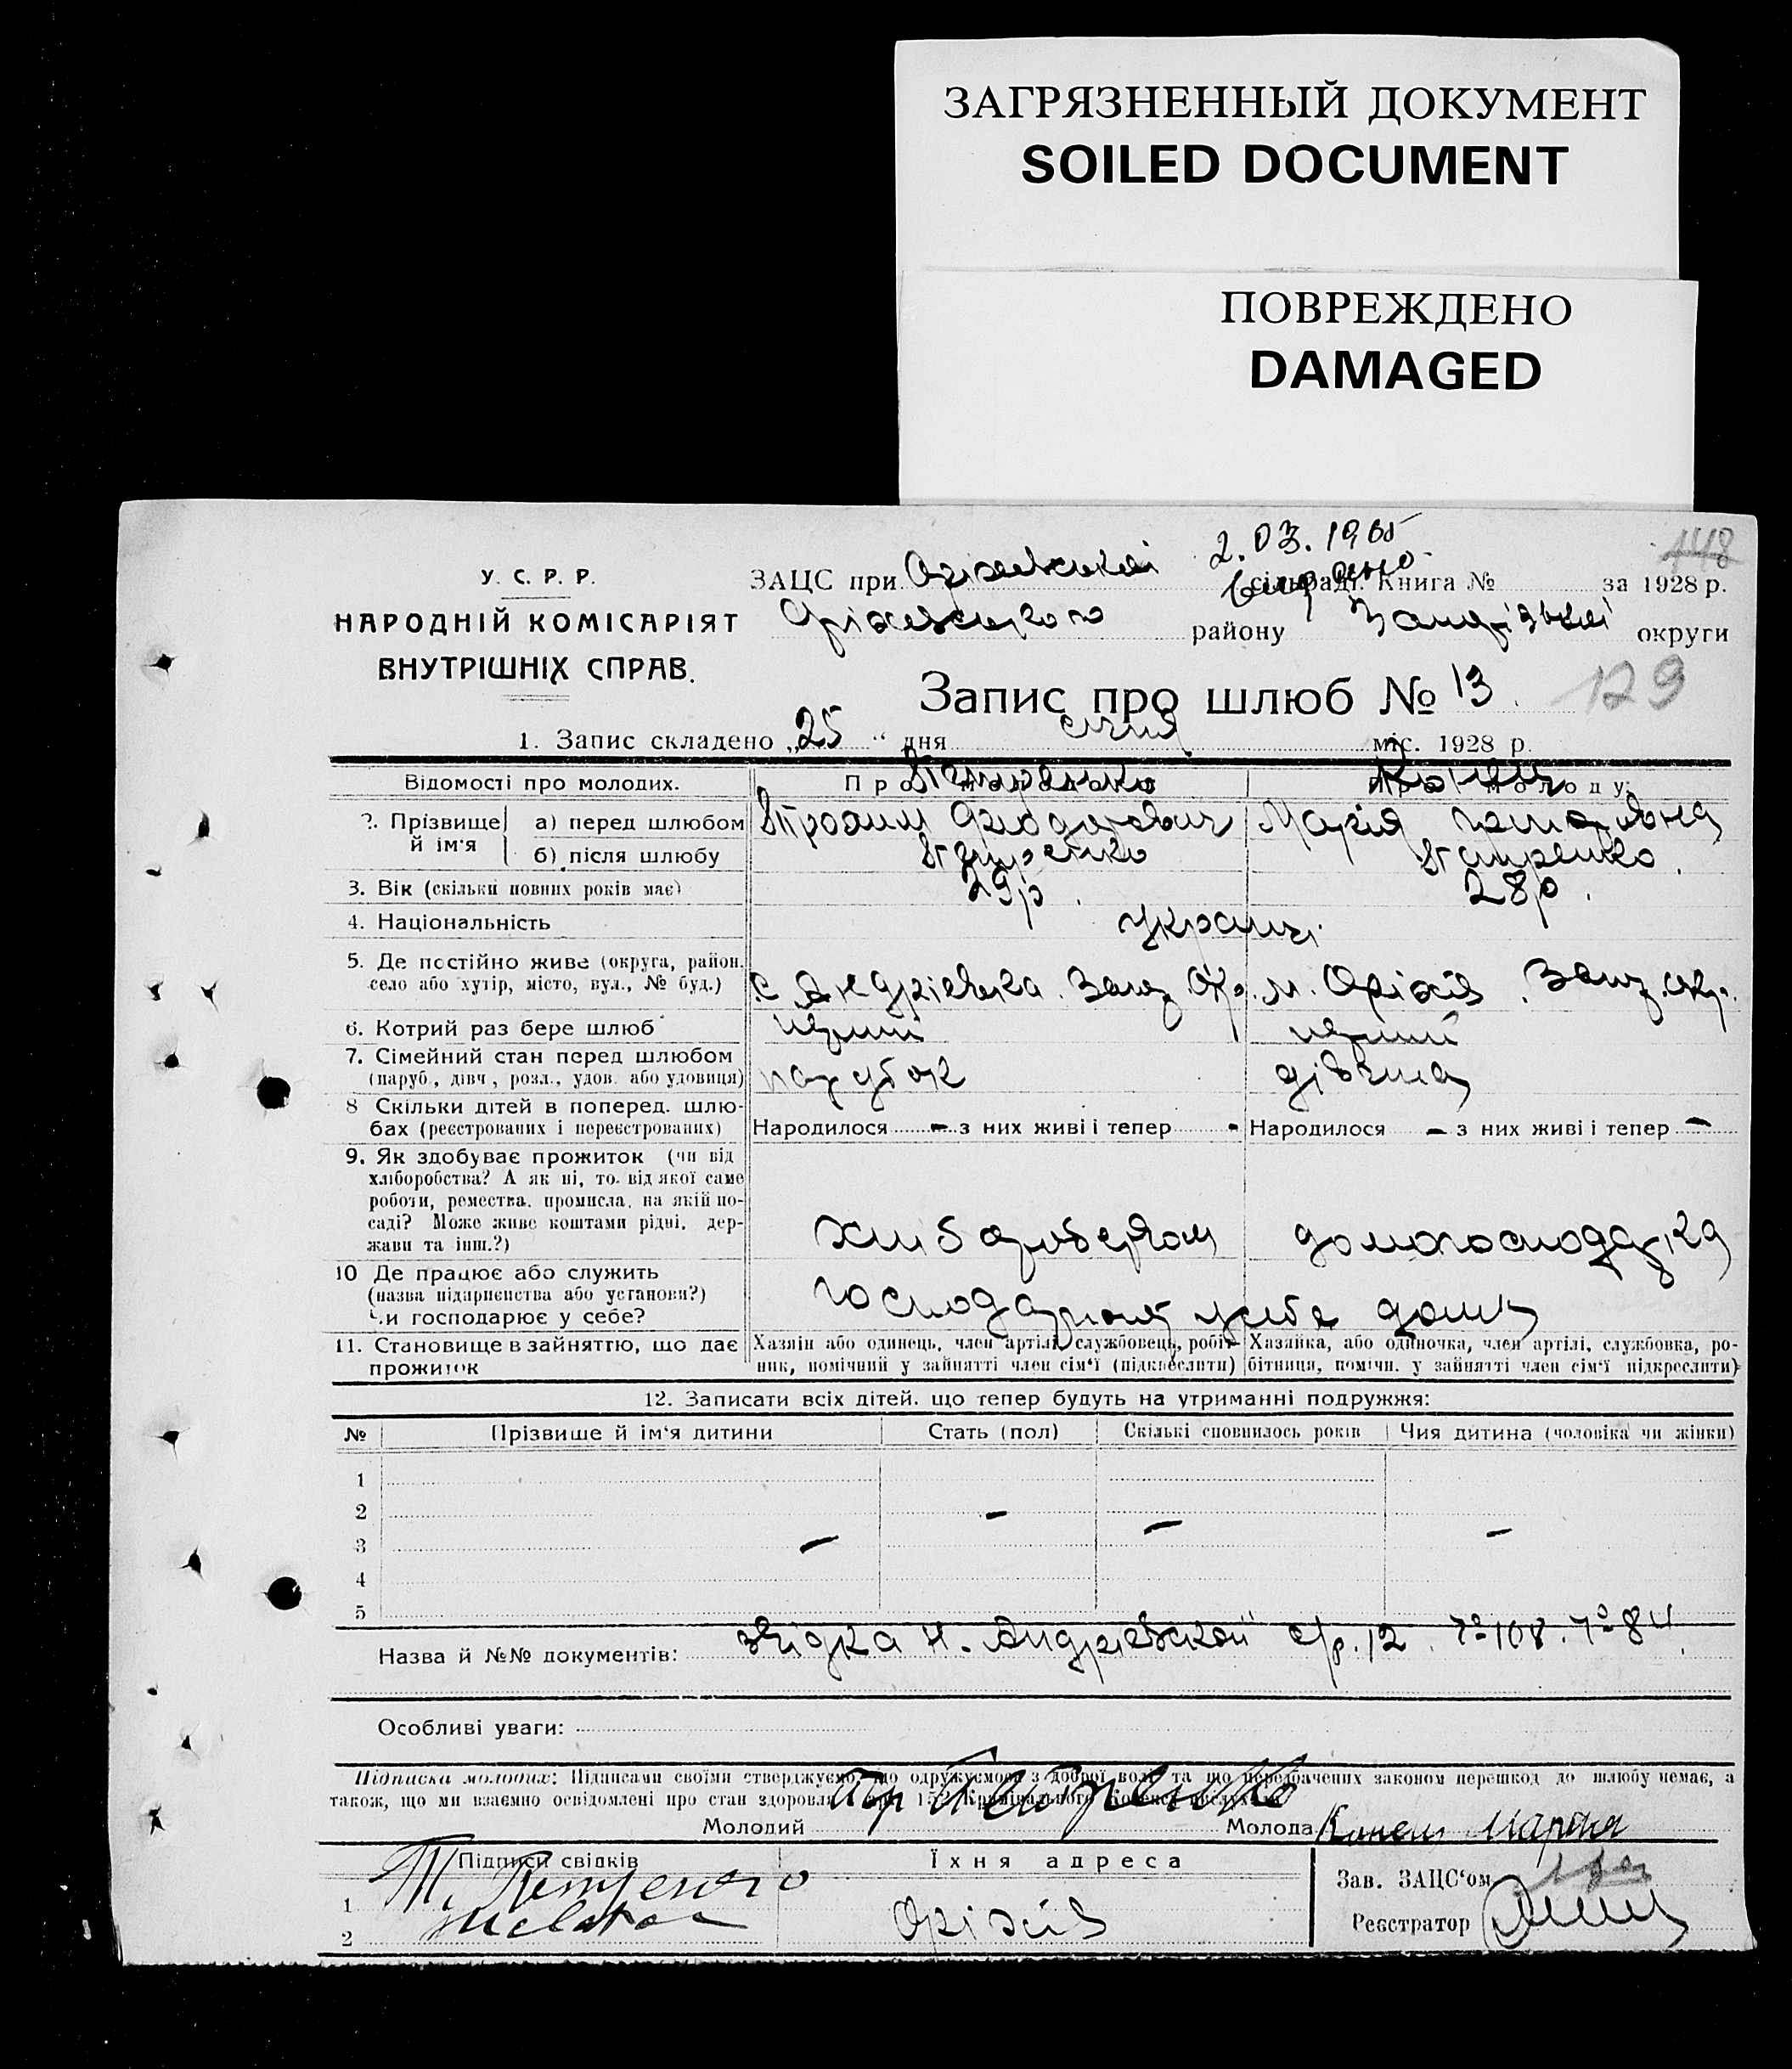 ЗАГРЯЗНЕННЫЙ ДОКУМЕНТ
SOILED DOCUMENT
ПОВРЕЖДЕНО
DAMAGED
2.03.19
148
У. С. Р. Р.
НАРОДНІЙ КОМІСАРІЯТ
ВНУТРІШНІХ СПРАВ.
ЗАЦС при Оріхівській сільраді. Книга № за 1928 р.
Оріхівського району Запорізької округи
Запис про шлюб № 13. 129
1. Запис складено „25“ дня січня міс. 1928 р.
Відомості про молодих. Про молодого Про молоду:
Петренко
2. Прізвище й ім'я а) перед шлюбом Трохим Феодорович Марія
б) після шлюбу Петренко Петренко
3. Вік (скільки повних років має) 29 р. 28 р.
4. Національність Україн.
5. Де постійно живе (округа, район, село або хутір, місто, вул., № буд.) с. Андріївка. Запоз. Окр. м. Оріхів. Запоз. окр.
6. Котрий раз бере шлюб перший перший
7. Сімейний стан перед шлюбом (паруб., дівч., розл., удов. або удовиця) парубок дівчина
8 Скільки дітей в поперед. шлюбах (реєстрованих і нереєстрованих) Народилося – з них живі і тепер - Народилося – з них живі і тепер –
9. Як здобуває прожиток (чи від хліборобства? А як ні, то від якої саме роботи, ремества, промисла, на якій посаді? Може живе коштами рідні, держави та інш.?) домогосподарка
10 Де працює або служить (назва підприємства або установи?) Чи господарює у себе? у себе дома
11. Становище в зайняттю, що дає прожиток
Хазяїн або одинець, член артілі, службовець, робітник, помічний у зайнятті член сім'ї (підкреслити)
Хазяйка, або одиночка, член артілі, службовка, робітниця, помічн. у зайнятті член сім'ї підкреслити)
12. Записати всіх дітей, що тепер будуть на утриманні подружжя:
№ Прізвище й ім'я дитини Стать (пол) Скількі сповнилось років Чия дитина (чоловіка чи жінки)
1
2 –
3 – – –
4
5
Назва й №№ документів: Н. с/р. 12. № 108. № 84.
Особливі уваги:
Підписка молодих: Підписами своїми стверджуємо, що одружуємося з доброї волі та що передбачених законом перешкод до шлюбу немає, а
також, що ми взаємно освідомлені про стан здоровля. 152 Кримінального Кодексу
Молодий Тр Петренко Молода Марія
Підписи свідків Їхня адреса Зав. ЗАЦС'ом
1 Т. Петренко
2 Оріхів Реєстратор